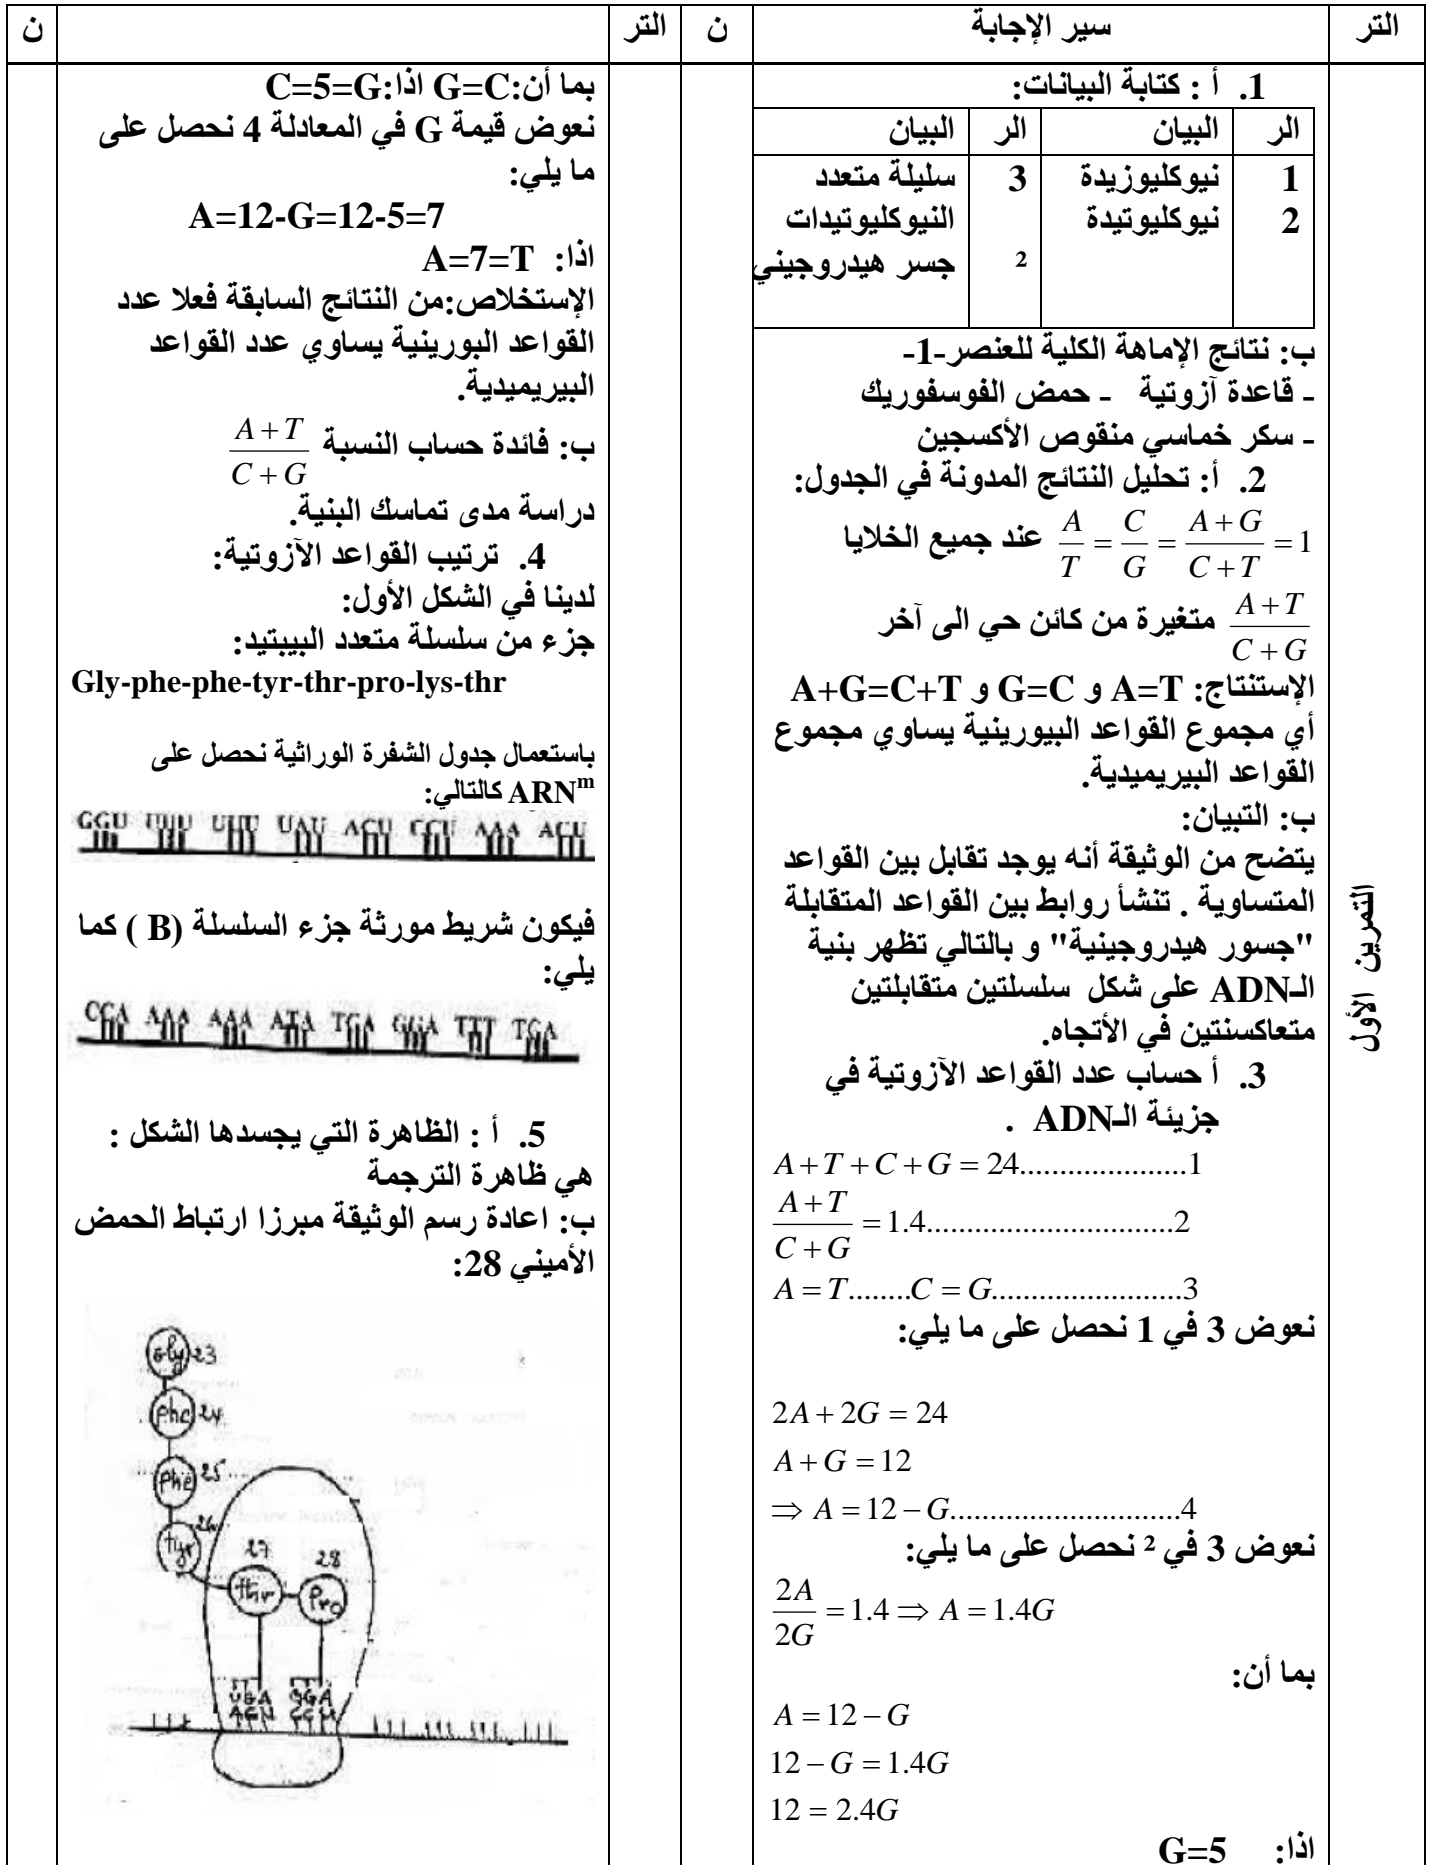 التر
سير الإجابة
ن
التر
ن
التمرين الأول
1. أ : كتابة البيانات:
الر البيان الر البيان
1 نيوكليوزيدة 3 سليلة متعدد
2 نيوكليوتيدة النيوكليوتيدات
² جسر هيدروجيني
ب: نتائج الإماهة الكلية للعنصر-1-
- قاعدة آزوتية - حمض الفوسفوريك
- سكر خماسي منقوص الأكسجين
2. أ: تحليل النتائج المدونة في الجدول:
A/T = C/G = (A+G)/(C+T) = 1 عند جميع الخلايا
(A+T)/(C+G) متغيرة من كائن حي الى آخر
الإستنتاج: A=T و G=C و A+G=C+T
أي مجموع القواعد البيورينية يساوي مجموع
القواعد البيريميدية.
ب: التبيان:
يتضح من الوثيقة أنه يوجد تقابل بين القواعد
المتساوية . تنشأ روابط بين القواعد المتقابلة
"جسور هيدروجينية" و بالتالي تظهر بنية
الـADN على شكل سلسلتين متقابلتين
متعاكسنتين في الأتجاه.
3. أ حساب عدد القواعد الآزوتية في
جزيئة الـADN .
A+T+C+G = 24.....................1
(A+T)/(C+G) = 1.4..............................2
A = T........C = G.......................3
نعوض 3 في 1 نحصل على ما يلي:
2A + 2G = 24
A + G = 12
⇒ A = 12 − G...........................4
نعوض 3 في ² نحصل على ما يلي:
2A/2G = 1.4 ⇒ A = 1.4G
بما أن:
A = 12 − G
12 − G = 1.4G
12 = 2.4G
اذا: G=5
بما أن:G=C اذا:C=5=G
نعوض قيمة G في المعادلة 4 نحصل على
ما يلي:
A=12-G=12-5=7
اذا: A=7=T
الإستخلاص:من النتائج السابقة فعلا عدد
القواعد البورينية يساوي عدد القواعد
البيريميدية.
ب: فائدة حساب النسبة (A+T)/(C+G)
دراسة مدى تماسك البنية.
4. ترتيب القواعد الآزوتية:
لدينا في الشكل الأول:
جزء من سلسلة متعدد الببيتيد:
Gly-phe-phe-tyr-thr-pro-lys-thr
باستعمال جدول الشفرة الوراثية نحصل على
ARNᵐ كالتالي:
GGU UUU UUU UAU ACU CCU AAA ACU
فيكون شريط مورثة جزء السلسلة (B ) كما
يلي:
CCA AAA AAA ATA TGA GGA TTT TGA
5. أ : الظاهرة التي يجسدها الشكل :
هي ظاهرة الترجمة
ب: اعادة رسم الوثيقة مبرزا ارتباط الحمض
الأميني 28:
Gly 23
phe 24
phe 25
tyr 26
27 28
thr pro
UGA GGA
ACU CCU